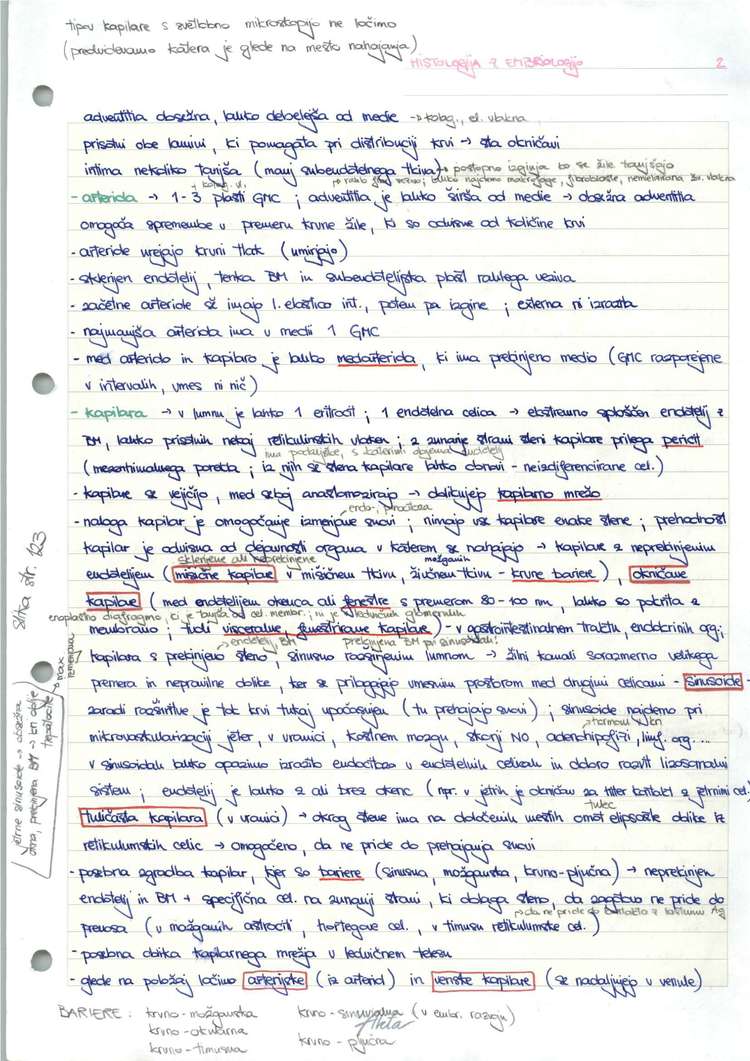 tipov kapilare s svetlobno mikroskopijo ne ločimo
(predvidevamo katera je glede na mesto nahajanja)
HISTOLOGIJA Z EMBRIOLOGIJO 2
adventitia obsežna, lahko debelejša od medie → kolag., el. vlakna
prisotni obe lamini, ki pomagata pri distribuciji krvi → sta okničavi
intima nekoliko tanjša (manj subendotelnega tkiva) → postopno izginja ko se žile tanjšajo
- arteriola → 1-3 plasti GMC ; adventitia je lahko širša od medie → obsežna adventitia
omogoča spremembe v premeru krvne žile, ki so odvisne od količine krvi
- arteriole urejajo krvni tlak (umirjajo)
- sklenjen endotelij, tenka BM in subendotelijska plast rahlega veziva
- začetne arteriole še imajo l. elastico int., potem pa izgine ; externa ni izrazita
- najmanjša arteriola ima v medii 1 GMC
- med arteriolo in kapilaro je lahko metaarteriola, ki ima prekinjeno medio (GMC razporejene
v intervalih, vmes ni nič)
- kapilara → v lumnu je lahko 1 eritrocit ; 1 endotelna celica → ekstremno sploščen endotelij z
BM, lahko prisotnih nekaj retikulinskih vlaken ; z zunanje strani steni kapilare prilega pericit
ima podaljške, s katerimi objema endotelij
(mezenhimalnega porekla ; iz njih se stena kapilare lahko obnovi - neizdiferencirane cel.)
- kapilare se vejčijo, med seboj anastomozirajo → oblikujejo kapilarno mrežo
endo-, pinocitoza
- naloga kapilar je omogočanje izmenjave snovi ; nimajo vse kapilare enake stene ; prehodnost
kapilar je odvisna od dejavnosti organa v katerem se nahajajo → kapilare z neprekinjenim
sklenjene ali neprekinjene možganih
endotelijem (mišične kapilare v mišičnem tkivu, živčnem tkivu - krvne bariere), okničave
kapilare (med endotelijem okenca ali fenestre s premerom 80-100 nm, lahko so pokrita z
enoplastno diafragmo, ki je tanjša od cel. membr. ; ni je v ledvičnih glomerulih
membrano ; tudi visceralne, fenestrirane kapilare) - v gastrointestinalnem traktu, endokrinih org ;
→ endotelij, BM prekinjena BM pri sinusoidah!
kapilara s prekinjeno steno, sinusno razširjenim lumnom → žilni kanali sorazmerno velikega
premera in nepravilne oblike, ker se prilagajajo vmesnim prostorom med drugimi celicami - sinusoide -
zaradi razširitve je tok krvi tukaj upočasnjen (tu prehajajo snovi) ; sinusoide najdemo pri
mikrovaskularizaciji jeter, v vranici, kostnem mozgu, skorji NO, adenohipofizi, limf. org...
v sinusoidah lahko opazimo izrazito endocitozo v endotelnih celicah in dobro razvit lizosomalni
sistem ; endotelij je lahko z ali brez okenc (npr. v jetrih je okničav za hiter kontakt z jetrnimi cel.)
tulec
tuličasta kapilara (v vranici) → okrog stene ima na določenih mestih omot elipsaste oblike iz
retikulumskih celic → omogočeno, da ne pride do prehajanja snovi
- posebna zgradba kapilar, kjer so bariere (sinusna, možganska, krvno-pljučna) → neprekinjen
endotelij in BM + specifična cel. na zunanji strani, ki oblaga steno, da zagotovo ne pride do
→ da ne pride do kontakta z lastnimi Ag
prenosa (v možganih astrociti, hortegove cel., v timusu retikulumske cel.)
- posebna oblika kapilarnega mrežja v ledvičnem telesu
- glede na položaj ločimo arterijske (iz arteriol) in venske kapilare (se nadaljujejo v venule)
BARIERE : krvno-možganska krvno-sinusialna (v embr. razvoju)
krvno-okularna
krvno-timusna krvno-pljučna
Slika str. 123
jetrne sinusoide → obsežna
okna, prekinjena BM → kri obliva
hepatocite